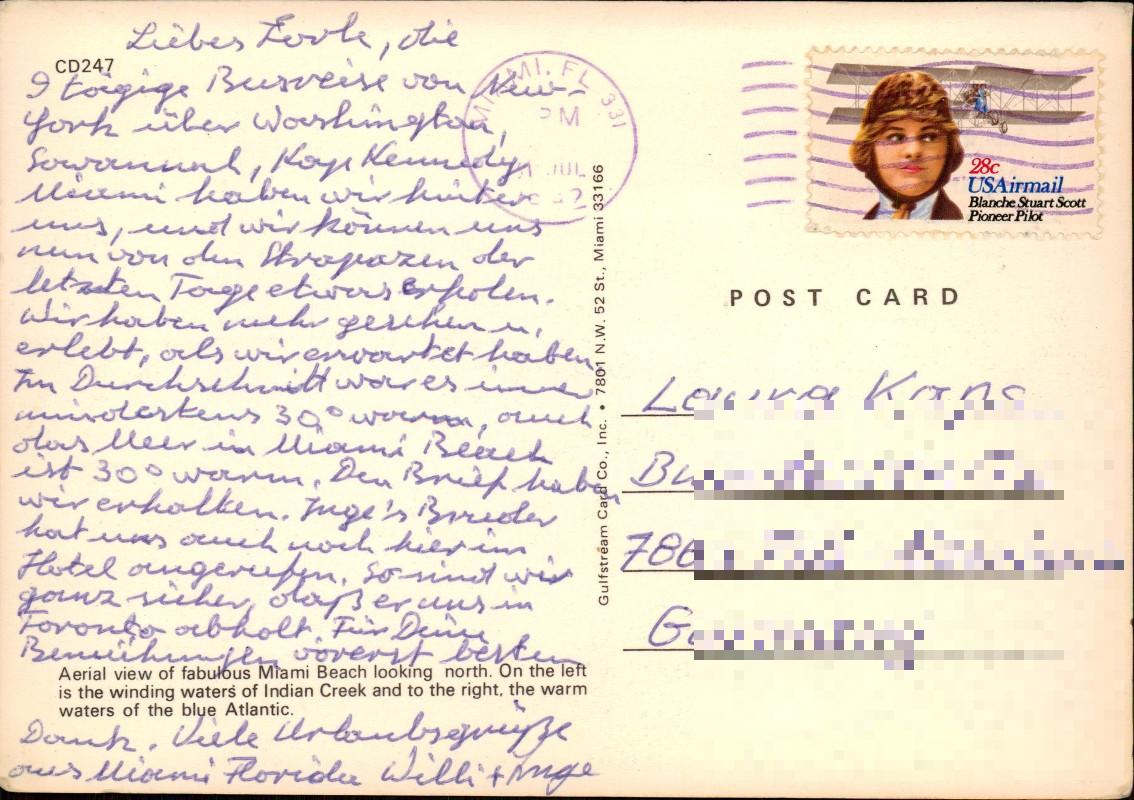 Liebes Lorle, die
CD247
9 tägige Busreise von New-
York über Washington,
Savannah, Kap Kennedy,
Miami haben wir hinter
uns, und wir können uns
nun von den Strapazen der
letzten Tage etwas erholen.
Wir haben mehr gesehen u.
erlebt, als wir erwartet haben.
Im Durchschnitt war es immer
mindestens 30° warm, auch
das Meer in Miami Beach
ist 30° warm. Den Brief haben
wir erhalten. Inge's Bruder
hat uns auch noch hier im
Hotel angerufen. So sind wir
ganz sicher, daß er uns in
Toronto abholt. Für Deine
Bemühungen vorerst besten
Aerial view of fabulous Miami Beach looking north. On the left
is the winding waters of Indian Creek and to the right, the warm
waters of the blue Atlantic.
Dank. Viele Urlaubsgrüße
aus Miami Florida Willi + Inge
Gulfstream Card Co., Inc. • 7801 N.W. 52 St., Miami 33166
MIAMI, FL 331
PM
JUL
28c
USAirmail
Blanche Stuart Scott
Pioneer Pilot
POST CARD
Laura